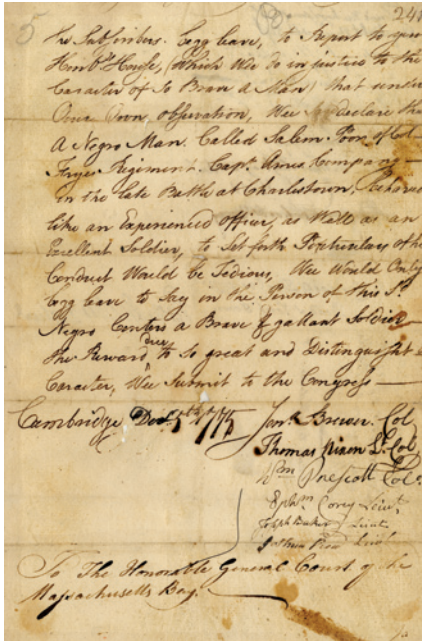 5
241
The Subscribers. begg leave, to Report to your
Honble House, (Which Wee do in justice to the
Caracter of So Brave a Man) that under
Our Own observation, Wee declare that
A Negro Man Called Salem Poor of Col
Fryes Regiment. Capt. Ames Company
in the late Battle at Charlestown, behaved
like an Experienced officer, as Well as an
Excellent Soldier, to Set forth Perticulars of his
Conduct Would be Tedious, Wee Would Only
begg leave to Say in the Person of this Sd
Negro Centers a Brave & gallant Soldier
The Reward due to So great and Distinguisht a
Caracter, Wee Submit to the Congress
Cambridge Decr 5th 1775
Jona. Brewer. Col
Thomas Nixon Lt. Col
Wm Prescott Colo.
Ephm. Corey Lieut.
Joseph Baker Lieut
Joshua Row Lieut
To The Honorable General Court of the
Massachusetts Bay.